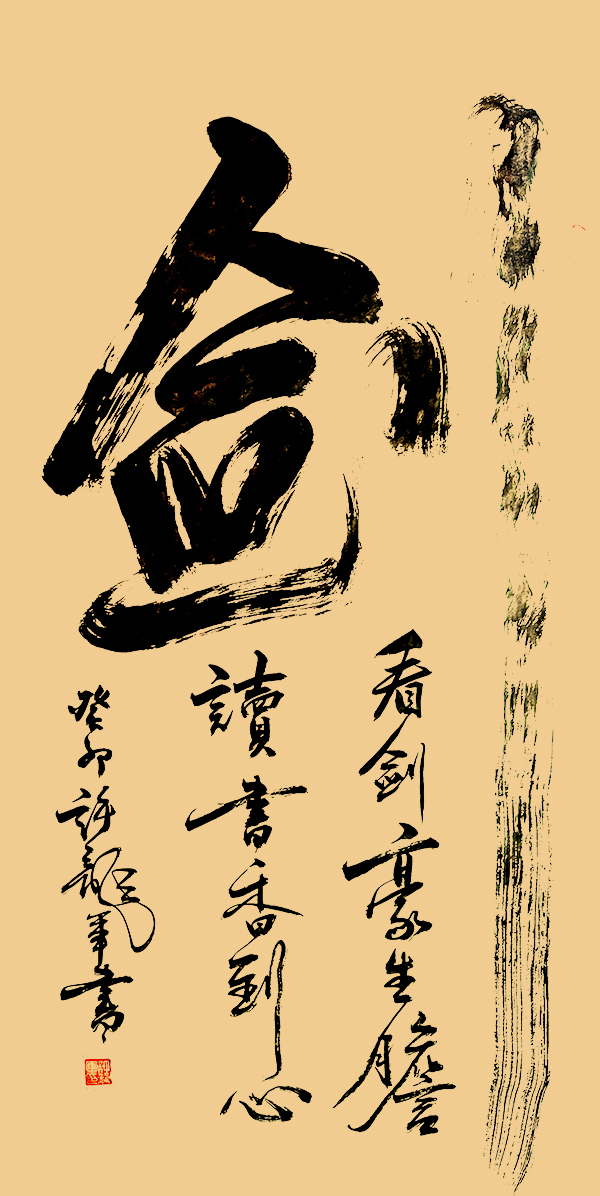 剑
看劍豪生膽
讀書香到心
癸卯許龍軍書